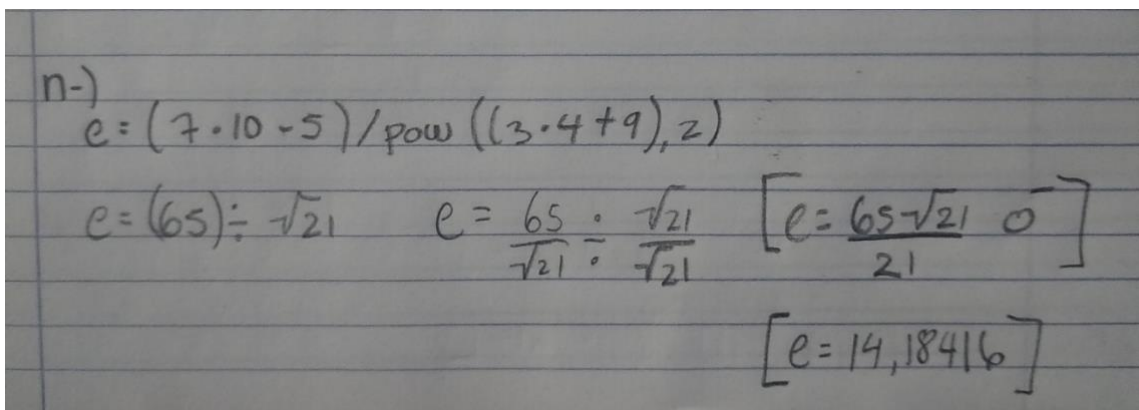 n-)
e = (7·10-5)/pow((3·4+9),2)
e = (65) ÷ √21 e = 65/√21 ÷ √21/√21 [e = 65√21/21 ō]
[e = 14,18416]